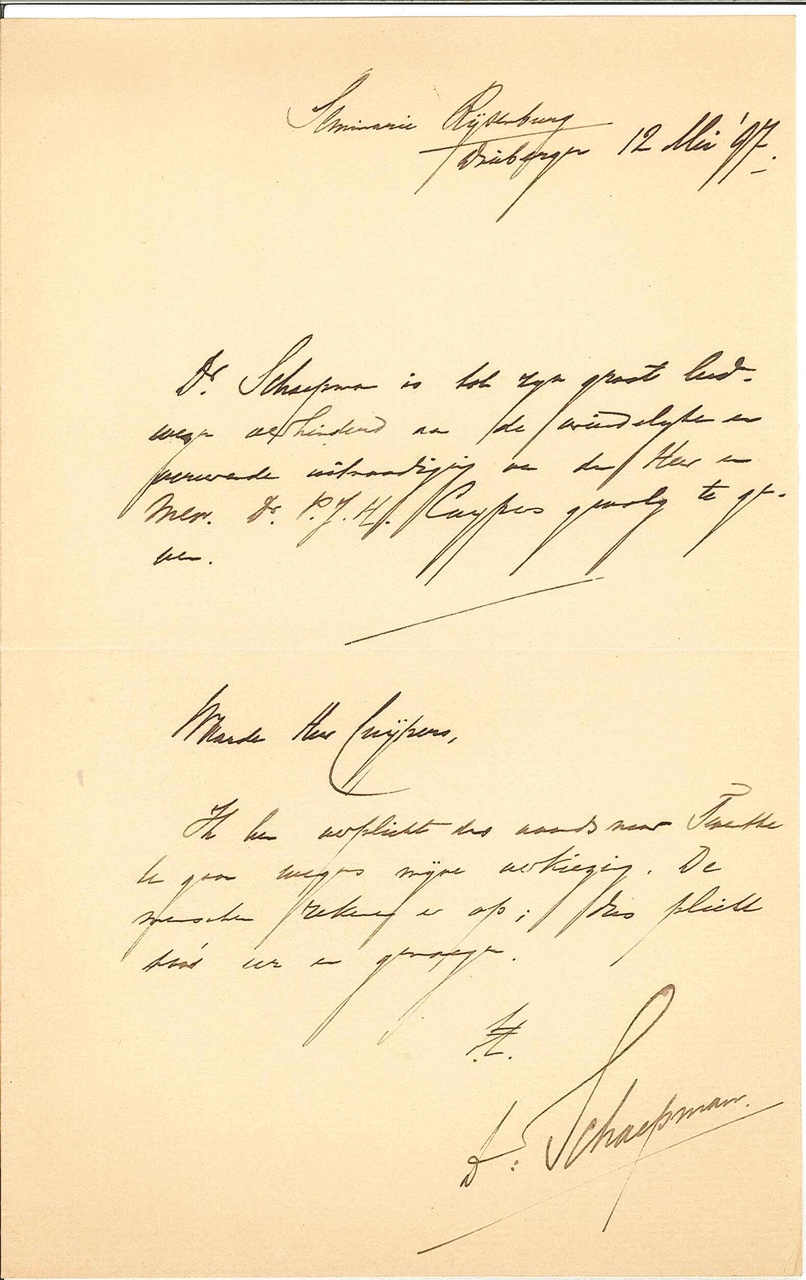 Seminarie Rijsenburg
Driebergen 12 Mei '97.
Dr. Schaepman is tot zijn groot leed-
wezen verhinderd aan de vriendelijke en
vereerende uitnoodiging van den Heer en
Mevr. Dr. P. J. H. Cuypers gevolg te ge-
ven.
Waarde Heer Cuijpers,
Ik ben verplicht des avonds naar Twenthe
te gaan wegens mijne verkiezing. De
menschen rekenen er op; dus plicht
vóór eer en genoegen.
t.t.
Dr. Schaepman.